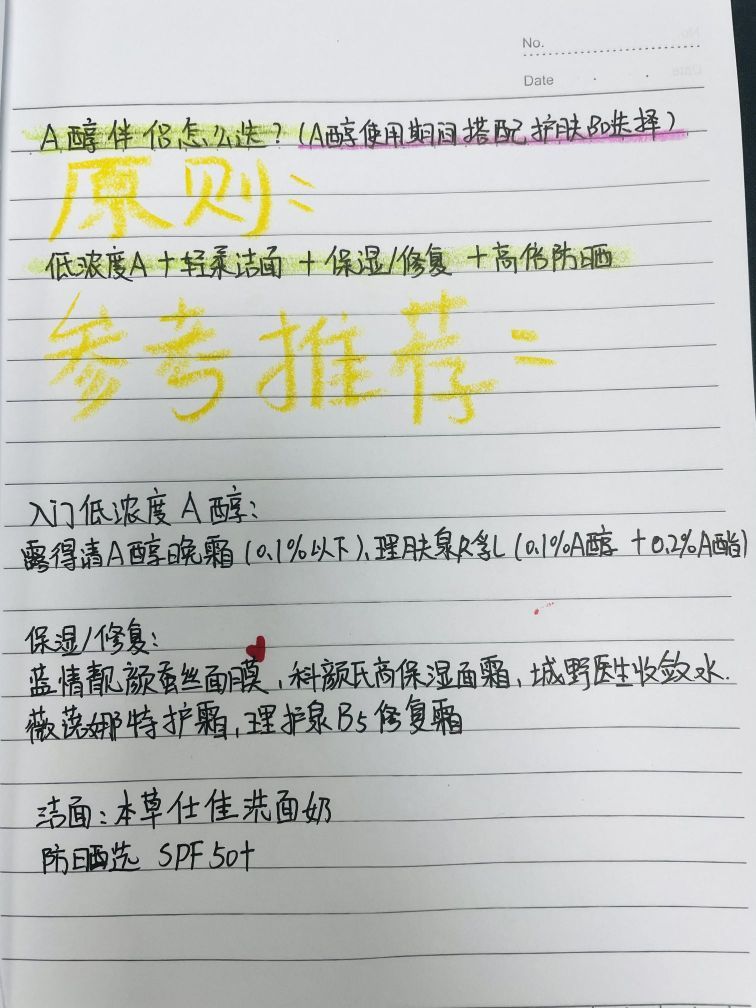 No.
Date
A醇伴侣怎么选？(A醇使用期间搭配护肤品选择)
原则：
低浓度A＋轻柔洁面＋保湿/修复＋高倍防晒
参考推荐：
入门低浓度A醇：
露得清A醇晚霜(0.1%以下)、理肤泉R孚L(0.1%A醇＋0.2%A酯)
保湿/修复：
蓝情靓颜蚕丝面膜、科颜氏高保湿面霜，城野医生收敛水.
薇诺娜特护霜，理护泉B5修复霜
洁面：本草仕佳洗面奶
防晒选 SPF50+